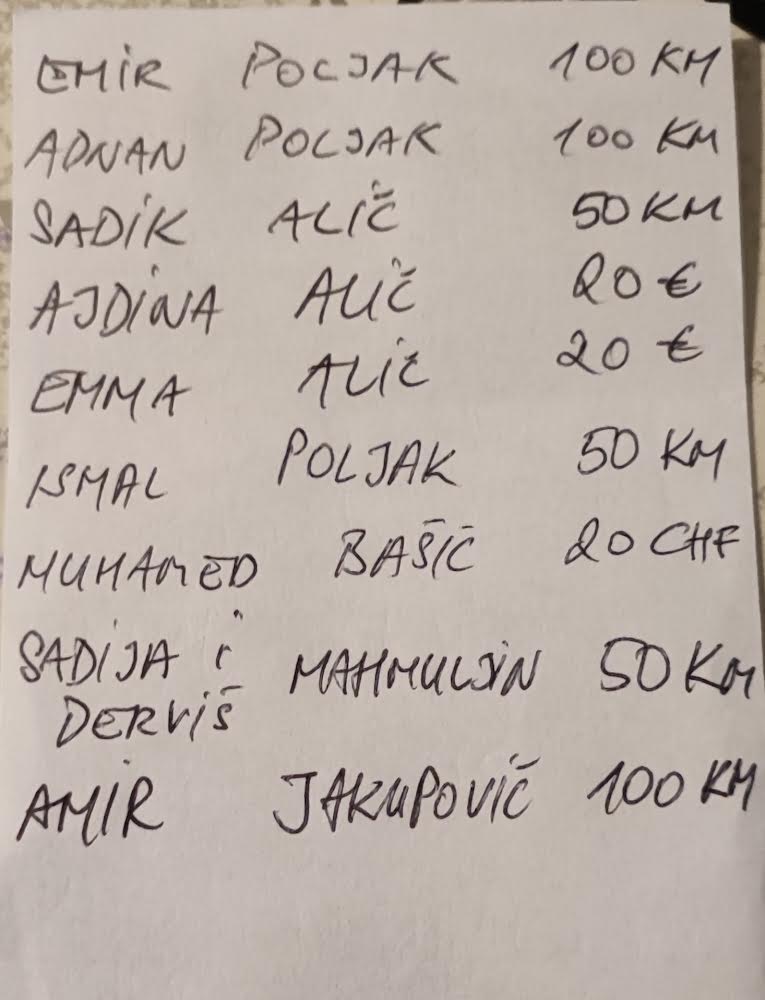 EMIR POLJAK 100 KM
ADNAN POLJAK 100 KM
SADIK ALIČ 50 KM
AJDINA ALIČ 20 €
EMMA ALIČ 20 €
ISMAL POLJAK 50 KM
MUHAMED BAŠIČ 20 CHF
SADIJA i MAHMULJIN 50 KM
DERVIŠ
AMIR JAKUPOVIČ 100 KM